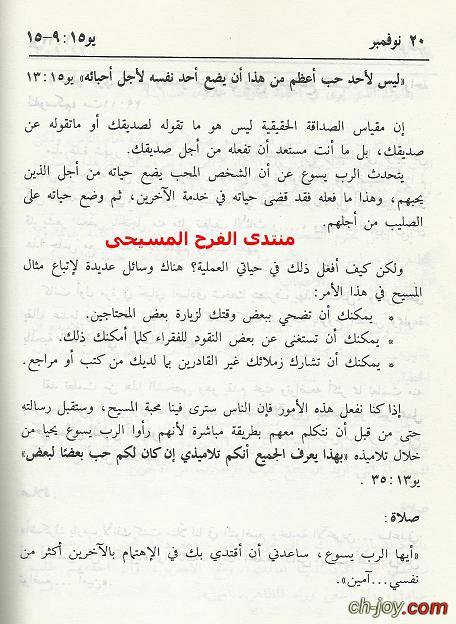 ٢٠ نوفمبر يو١٥: ٩-١٥
«ليس لأحد حب أعظم من هذا أن يضع أحد نفسه لأجل أحبائه» يو١٥: ١٣
إن مقياس الصداقة الحقيقية ليس هو ما تقوله لصديقك أو ماتقوله عن
صديقك، بل ما أنت مستعد أن تفعله من أجل صديقك.
يتحدث الرب يسوع عن أن الشخص المحب يضع حياته من أجل الذين
يحبهم، وهذا ما فعله فقد قضى حياته في خدمة الآخرين، ثم وضع حياته على
الصليب من أجلهم.
منتدى الفرح المسيحى
ولكن كيف أفعل ذلك في حياتي العملية؟ هناك وسائل عديدة لإتباع مثال
المسيح في هذا الأمر:
* يمكنك أن تضحي ببعض وقتك لزيارة بعض المحتاجين.
* يمكنك أن تستغنى عن بعض النقود للفقراء كلما أمكنك ذلك.
* يمكنك أن تشارك زملائك غير القادرين بما لديك من كتب أو مراجع.
إذا كنا نفعل هذه الأمور فإن الناس سترى فينا محبة المسيح، وستقبل رسالته
حتى من قبل أن نتكلم معهم بطريقة مباشرة لأنهم رأوا الرب يسوع يحيا من
خلال تلاميذه «بهذا يعرف الجميع أنكم تلاميذي إن كان لكم حب بعضًا لبعض»
يو١٣: ٣٥ .
صلاة:
«أيها الرب يسوع، ساعدني أن أقتدي بك في الإهتمام بالآخرين أكثر من
نفسي...آمين».
ch-joy.com